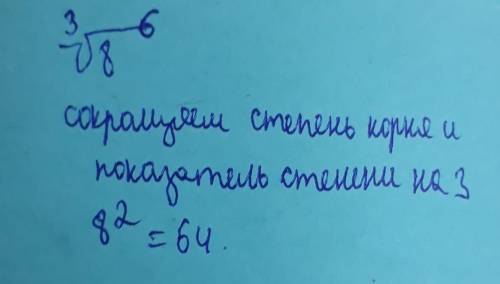 ∛8⁶
сокращяем степень корня и
показатель степени на 3
8² = 64.